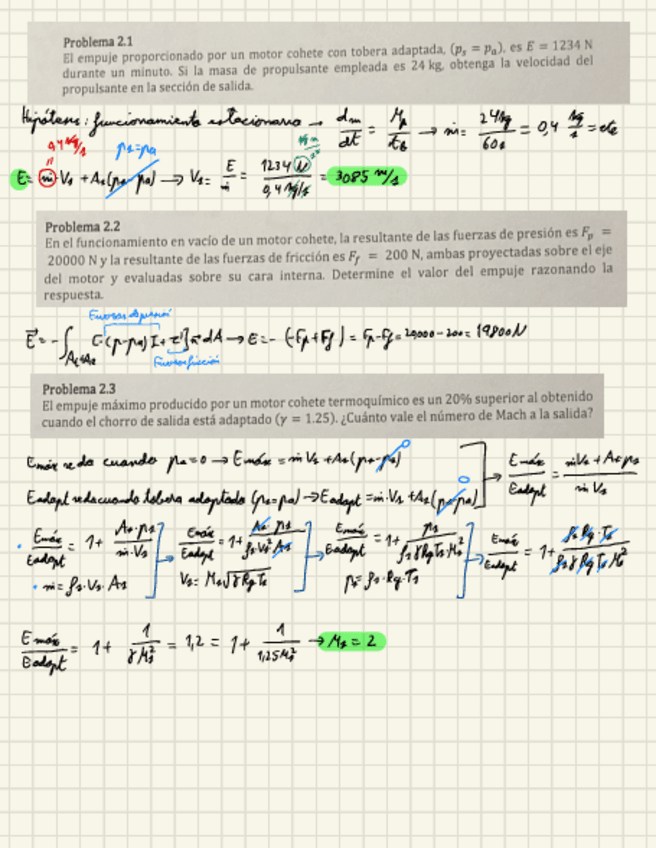 Problema 2.1
El empuje proporcionado por un motor cohete con tobera adaptada, (pₛ = pₐ), es E = 1234 N
durante un minuto. Si la masa de propulsante empleada es 24 kg, obtenga la velocidad del
propulsante en la sección de salida.
Hipótesis: funcionamiento estacionario → dm/dt = Mp/tb → ṁ = 24kg/60s = 0,4 kg/s = cte
0,4 kg/s ps=pa
E = ṁ·Vs + As(ps-pa) → Vs = E/ṁ = 1234 N/0,4 kg/s = 3085 m/s
Problema 2.2
En el funcionamiento en vacío de un motor cohete, la resultante de las fuerzas de presión es Fₚ =
20000 N y la resultante de las fuerzas de fricción es F_f = 200 N, ambas proyectadas sobre el eje
del motor y evaluadas sobre su cara interna. Determine el valor del empuje razonando la
respuesta.
Fuerzas de presión
E = -∫ [-(p-pa) I + τ'] n dA → E = -(-Fp+Ff) = Fp-Ff = 20000-200 = 19800N
Fuerzas fricción
Problema 2.3
El empuje máximo producido por un motor cohete termoquímico es un 20% superior al obtenido
cuando el chorro de salida está adaptado (γ = 1.25). ¿Cuánto vale el número de Mach a la salida?
Emáx se da cuando pa=0 → Emáx = ṁ Vs + As(ps-pa) 0
Emáx/Eadapt = (ṁVs + As ps)/(ṁ Vs)
Eadapt se da cuando tobera adaptada (ps=pa) → Eadapt = ṁ·Vs + As(ps-pa) 0
Emáx/Eadapt = 1 + As·ps/(ṁ·Vs) → Emáx/Eadapt = 1 + As·ps/(ρs·Vs² As) → Emáx/Eadapt = 1 + ps/(ρs γ Rg Ts Ms²) → Emáx/Eadapt = 1 + ρs·Rg·Ts/(ρs γ Rg Ts Ms²)
ṁ = ρs·Vs·As Vs = Ms√γRgTs ps = ρs·Rg·Ts
Emáx/Eadapt = 1 + 1/(γ Ms²) = 1,2 = 1 + 1/(1,25Ms²) → Ms = 2